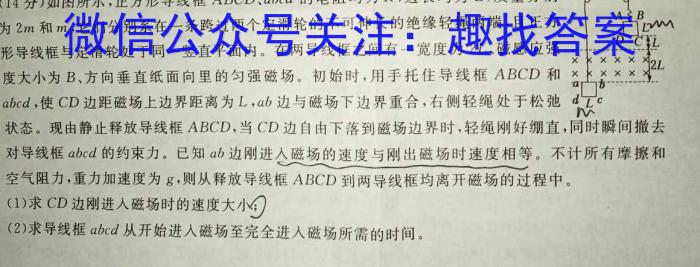 (14分)如图所示,正方形导线框ABCD、abcd的电阻均为R,边长均为L,质量分别
为2m和m
微信公众号关注:趣找答案
形导线框与定滑轮处于同一竖直平面内。在两导线框之间有一宽度为2L、磁感应强
度大小为B、方向垂直纸面向里的匀强磁场。初始时,用手托住导线框ABCD和
abcd,使CD边距磁场上边界距离为L,ab边与磁场下边界重合,右侧轻绳处于松弛
状态。现由静止释放导线框ABCD,当CD边自由下落到磁场边界时,轻绳刚好绷直,同时瞬间撤去
对导线框abcd的约束力。已知ab边刚进入磁场的速度与刚出磁场时速度相等。不计所有摩擦和
空气阻力,重力加速度为g,则从释放导线框ABCD到两导线框均离开磁场的过程中。
(1)求CD边刚进入磁场时的速度大小;
(2)求导线框abcd从开始进入磁场至完全进入磁场所需的时间。
B
C
L
2L
a b
d L c